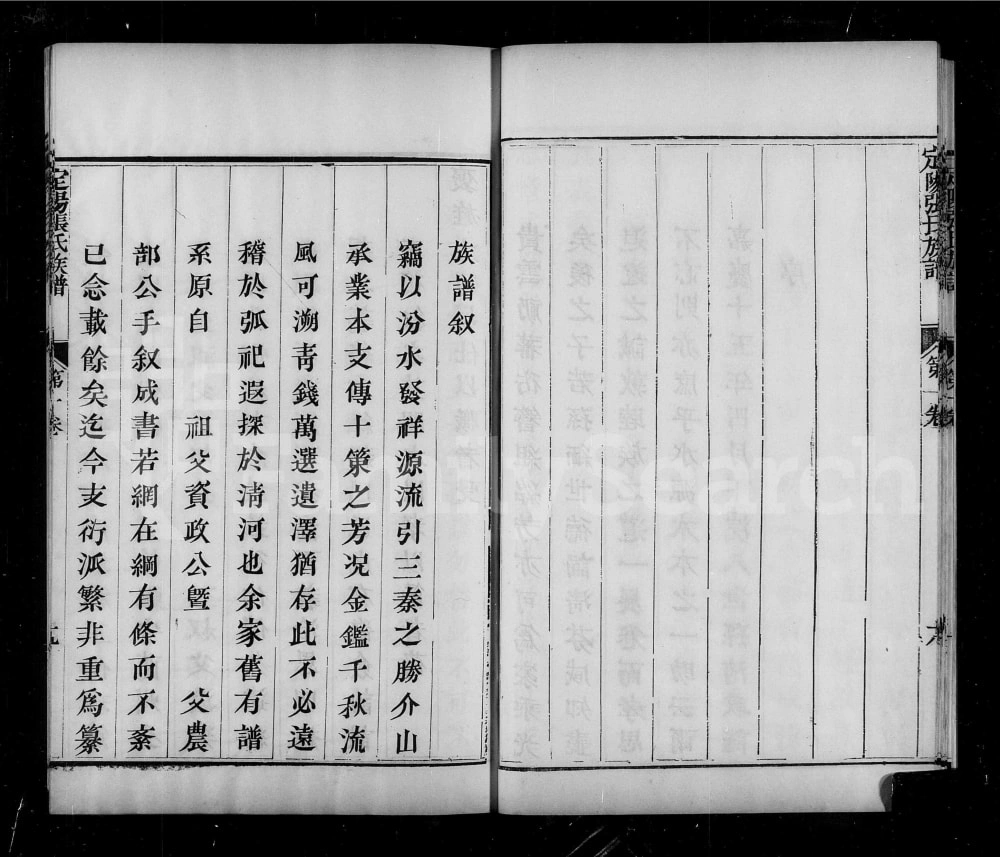 定陽張氏族譜
第一卷
六
族譜叙
竊以汾水發祥源流引三秦之勝介山
承業本支傳十策之芳况金鑑千秋流
風可溯青錢萬選遺澤猶存此不必遠
稽於弧祀遐探於清河也余家舊有譜
系原自　祖父資政公曁　父農
部公手叙成書若網在綱有條而不紊
已念載餘矣迄今支衍派繁非重爲纂
定陽張氏族譜
第一卷